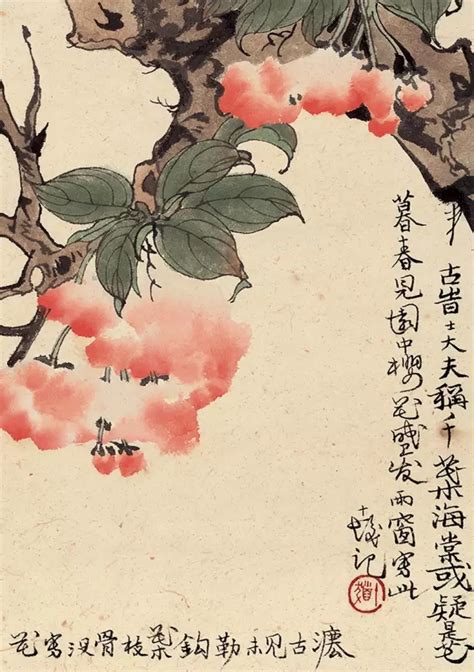 古昔士大夫稱千葉海棠或疑是
暮春見園中櫻花盛发雨窗写此
記
花寫没骨枝葉鈎勒未见古灋